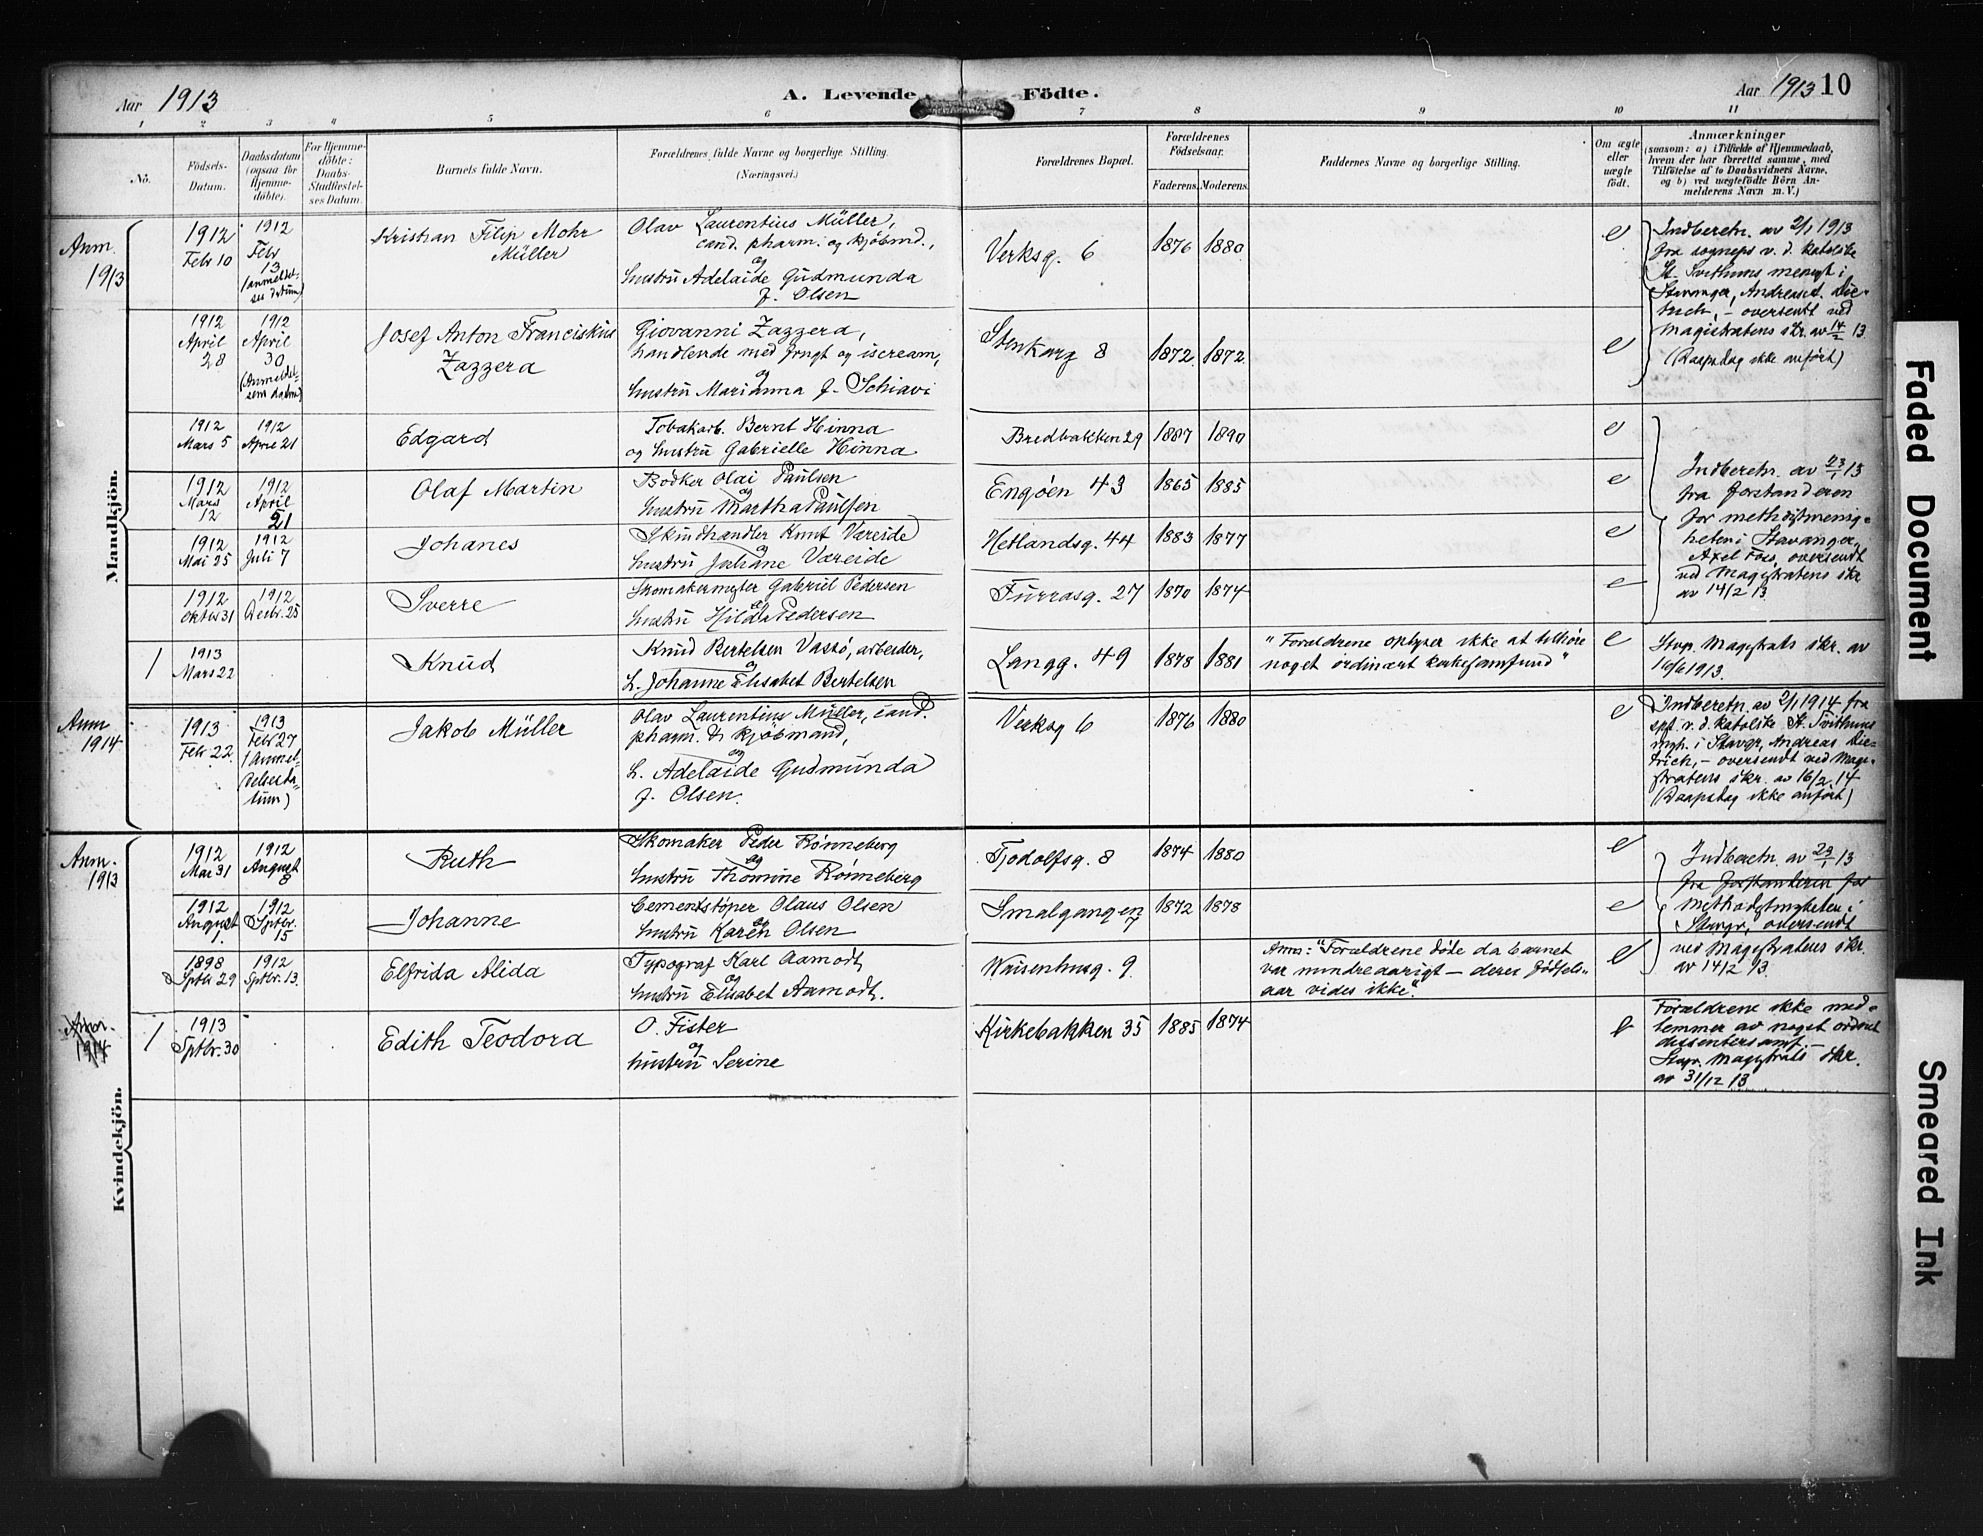 Aar 1913
A. Levende Födte.
Aar 1913 10
1 2 3 4 5 6 7 8 9 10 11
No.
Födsels-
Datum.
Daabsdatum
(ogsaa for
Hjemme-
döbte).
For Hjemme-
döbte:
Daabs-
Stadfæstel-
ses Datum.
Barnets fulde Navn.
Forældrenes fulde Navne og borgerlige Stilling.
(Næringsvei.)
Forældrenes Bopæl.
Forældrenes
Födselsaar.
Faderens. Moderens.
Faddernes Navne og borgerlige Stilling.
Om ægte
eller
uægte
födt.
Anmærkninger
(saasom: a) i Tilfælde af Hjemmedaab,
hvem der har forrettet samme, med
Tilföielse af to Daabsvidners Navne,
og b) ved uægtefödte Börn An-
melderens Navn m. V.)
Mandkjön.
Anm.
1913
1912
Febr 10
1912
Febr
13
(anmeldel-
ses datum)
Kristian Filip Mohr
Müller
Olav Laurentius Müller,
cand. pharm. og kjøbmd.,
og
hustru Adelaide Gudmunda
f. Olsen
Verksg. 6
1876 1880
e
Indberetn. av 2/1 1913
fra sognepr. v. d. katolske
St. Svithuns menigt i
Stavanger, Andreas Die-
trich, - oversendt ved
Magistratens skr. av 14/2 13
(Daapsdag ikke anført)
1912
April
28
1912
April
30
Josef Anton Franciskus
Zazzera
Giovanni Zazzera,
handlende med frugt og iscream,
og
hustru Marianna f. Schiavi
Stenkarg 8
1872 1872
e
1912
Mars 5
1912
April 21
Edgard
Tobakarb. Bernt Hinna
og hustru Gabrielle Hinna
Bredbakken 29
1887 1890
e
Indberetn. av 23/1 13
fra forstanderen
for methodistmenig-
heten i Stavanger,
Axel Foss, oversendt
ved Magistratens skr
av 14/2 13
1912
Mars
12
1912
April
21
Olaf Martin
Bødker Olai Paulsen
og
hustru Martha Paulsen
Engøen 43
1865 1885
e
1912
Mai 25
1912
Juli 7
Johanes
Skindhandler Knut Væreide
og
hustru Juliane Væreide
Hetlandsg. 44
1883 1877
e
1912
Oktbr 31
1912
Decbr. 25
Sverre
Skomakermester Gabriel Pedersen
og
hustru Hilda Pedersen
Furrasg. 27
1870 1874
e
1
1913
Mars 22
Knud
Knud Bertelsen Vassø, arbeider,
og
h. Johanne Elisabet Bertelsen
Langg. 49
1878 1881
"Forældrene oplyser ikke at tilhøre
noget ordinært kirkesamfund"
e
Stvgr. Magistrats skr. av
16/6 1913.
Anm
1914
1913
Febr 22.
1913
Febr 27
(anmel-
delsesda-
tum)
Jakob Müller
Olav Laurentius Müller, cand.
pharm. & kjøbmand,
og
h. Adelaide Gudmunda
f. Olsen.
Verksg 6
1876 1880
e
Indberetn. av 2/1 1914 fra
spr. v. d. katolske St. Svithuns
mgh. i Stavgr, Andreas Die-
trich, - oversendt ved Magi-
stratens skr. av 16/2 14
(Daapsdag ikke anført)
Kvindekjön.
Anm.
1913
1912
Mai 31
1912
August
8
Ruth
Skomaker Peder Rønneberg
og
hustru Thomine Rønneberg
Tjodolfsg. 8
1874 1880
e
Indberetn. av 23/1 13
fra forstanderen for
Methodistmgheten i
Stavgr, oversendt
ved Magistratens skr.
av 14/2 13.
1912
August
1.
1912
Sptbr.
15
Johanne
Cementstøper Olaus Olsen
og
hustru Karen Olsen
Smalgangen
7
1872 1878
e
1898
Sptbr 29
1912
Sptbr. 13.
Elfrida Alida
Typograf Karl Aamodt
og
hustru Elisabet Aamodt.
Waisenhusg. 9.
Anm: "Forældrene døde da barnet
var mindreaarigt - deres fødsels-
aar vides ikke".
e
Anm.
1914
1
1913
Sptbr. 30
Edith Teodora
O. Fister
og
hustru Serine
Kirkebakken 35
1885 1874
e
Forældrene ikke med-
lemmer av noget ordnet
dissentersamf. -
Stavgr. Magistrats skr.
av 31/12 13
Faded Document
Smeared Ink